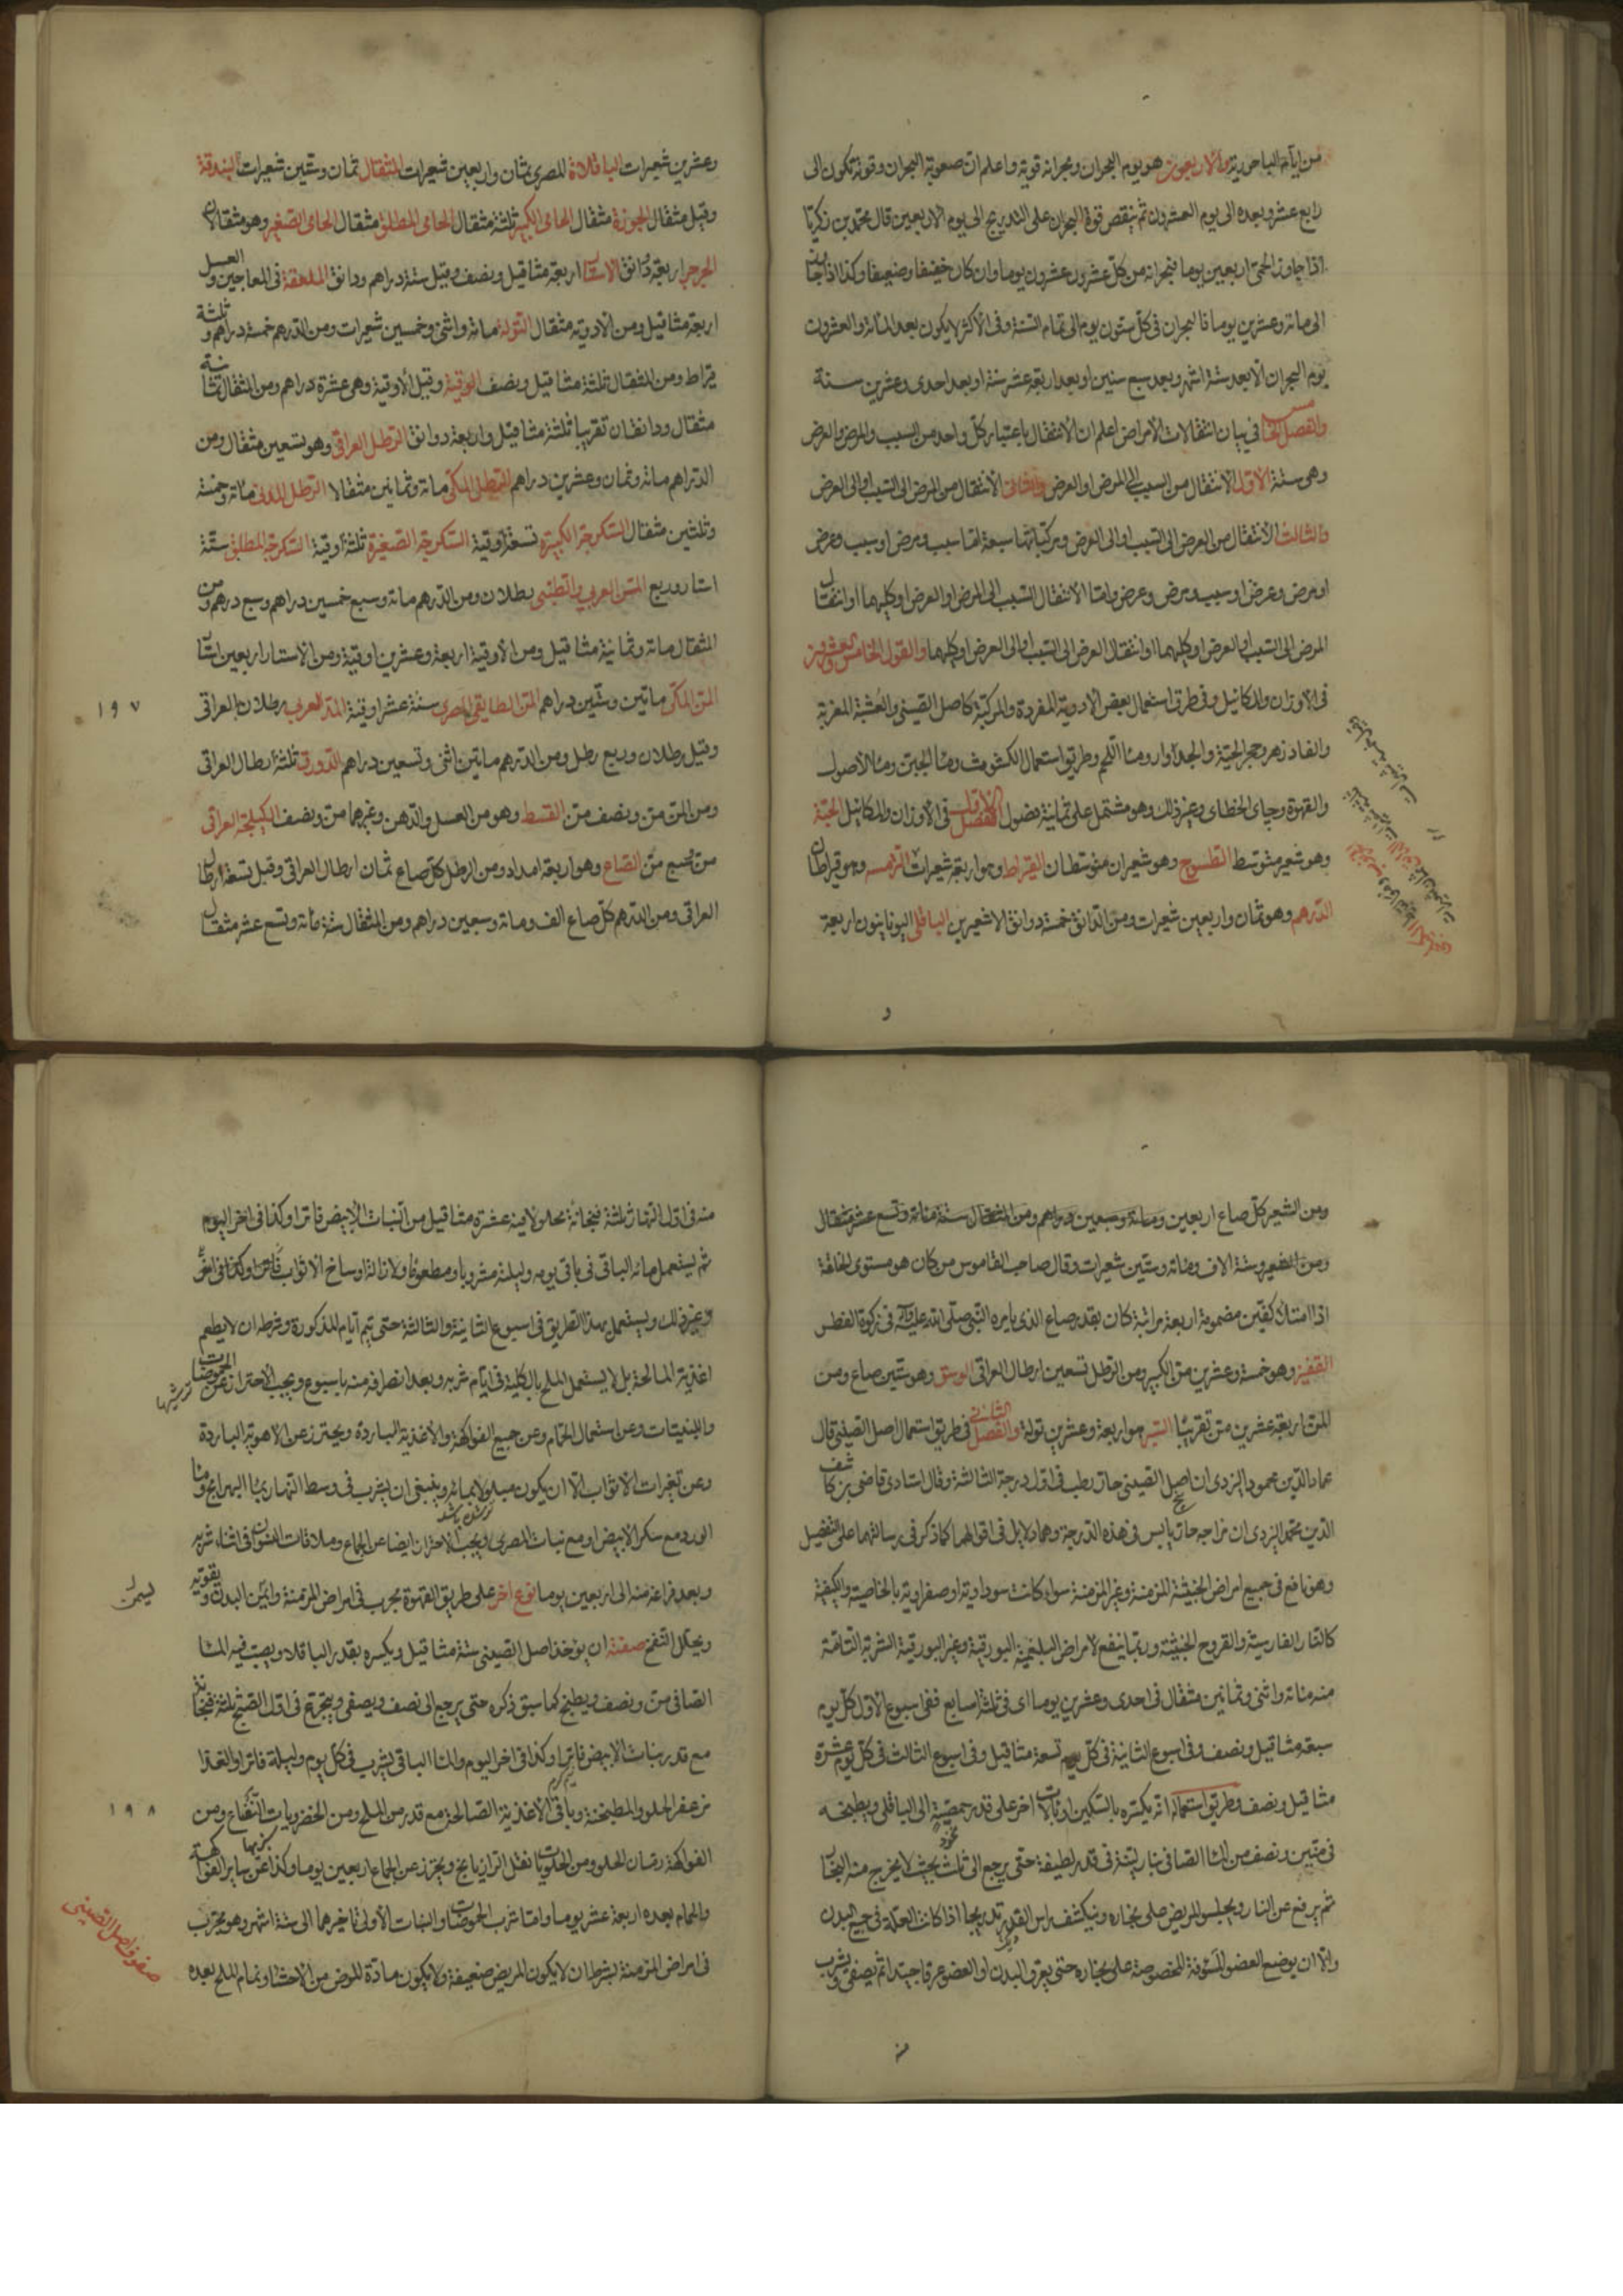 من ايام الباحورية والاربعون هو يوم البحران وبحرانه قوية واعلم ان صعوبة البحران وقوته تكون الى
رابع عشر وبعده الى يوم العشرون ثم ينقص قوة البحران على التدريج الى يوم الاربعين قال محمد بن زكريا
اذا جاوز الحمى اربعين يوما فبحرانه من كل عشرون عشرون يوما وان كان خفيفا وضعيفا وكذا اذا جاز
الى مائة وعشرين يوما فالبحران في كل ستون يوم الى تمام السنة وفي الاكثر لا يكون بعد المائة والعشرون
يوم البحران الا بعد ستة اشهر وبعد سبع سنين او بعد اربعة عشر سنة او بعد احدى وعشرين سنة
والفصل في بيان انتقالات الامراض اعلم ان الانتقال باعتبار كل واحد من السبب والمرض والعرض
وهي ستة الاول الانتقال من السبب الى المرض او العرض والثاني الانتقال من المرض الى السبب او الى العرض
والثالث الانتقال من العرض الى السبب او الى العرض ومركباتها سبعة اما سبب ومرض او سبب وعرض
او مرض وعرض او سبب ومرض وعرض واما الانتقال السبب الى المرض او العرض او كليهما او انتقال
المرض الى السبب او العرض او كليهما او انتقال العرض الى السبب او الى العرض او كليهما والقول الخامس والعشرون
في الاوزان والمكائيل وفي طرق استعمال بعض الادوية المفردة والمركبة كاصل الصيني والعشبة المغربة
والفادزهر وحجر الحية والجدوار وماء اللحم وطريق استعمال الكشوث وماء الجبن وماء الاصول
والقهوة وچاى الخطاى وغير ذلك وهو مشتمل على ثمانية فصول الفصل الاول في الاوزان والمكائيل الحبة
وهو شعير متوسط الطسوج وهو شعيران متوسطان القيراط وهو اربعة شعيرات الترامسه وهو قيراطان
الدرهم وهو ثمان واربعين شعيرات ومن الدانق خمسة دوانق الا شعيرين الباقلى اليونانيون اربعة
وعشرين شعيرات الباقلاة المصرى ثمان واربعين شعيرات المثقال ثمان وستين شعيرات البندقة
وقيل مثقال الجوزة مثقال الحامى الكبير ثلثة مثقال الحامى المطلق مثقال الحامى الصغير وهو مثقالان
اربعة دانق الاستار اربعة مثاقيل ونصف وقيل ستة دراهم ودانق الملعقة في المعاجين والعسل
اربعة مثاقيل ومن الادوية مثقال التوله مائة واثنى وخمسين شعيرات ومن الدرهم خمسة دراهم وثلثة
قيراط ومن المثقال ثلثة مثاقيل ونصف الوقية وقيل الاوقية وهي عشرة دراهم ومن المثقال
مثقال ودانقان تقريبا ثلثة مثاقيل واربعة دوانق الرطل العراقى وهو تسعين مثقال ومن
الدراهم مائة وثمان وعشرين دراهم الرطل المكى مائة وثمانين مثقالا الرطل المدنى مائة وخمسة
وثلثين مثقال السكرجة الكبيرة تسعة اوقية السكرجة الصغيرة ثلثة اوقية السكرجة المطلق ستة
استار وربع المن العربى والطبى رطلان ومن الدرهم مائة وسبع خمسين دراهم وسبع درهم ومن
المثقال مائة وثمانية مثاقيل ومن الاوقية اربعة وعشرين اوقية ومن الاستار اربعين استار
المن المكى مائتين وستين دراهم المن المصرى ستة عشر اوقية المد العربى رطلان بالعراقى
وقيل رطلان وربع رطل ومن الدرهم مائتين اثنى وتسعين دراهم الدورق ثلثة ارطال العراقى
ومن المن من ونصف من القسط وهو من العسل والدهن وغيرهما من ونصف الكيلجة العراقى
من الصاع وهو اربعة امداد ومن الرطل كل صاع ثمان ارطال العراقى وقيل تسعة ارطال
العراقى ومن الدرهم كل صاع الف ومائة وسبعين دراهم ومن المثقال ستة مائة وتسع عشر مثقال
۱۹۷
ومن الشعير كل صاع اربعين ومائة وسبعين دراهم ومن المثقال ستة مائة وتسع عشر مثقال
ومن الشعير ستة الاف ومائة وستين شعيرات وقال صاحب القاموس من كان هو مستوى الخلقة
اذا امتلأ كفين مضمومة اربعة مراتبة كان بقدر صاع الذى يامره النبي صلى الله عليه وآله في زكوة الفطر
القفيز وهو خمسة وعشرين من الكبير ومن الرطل تسعين ارطال العراقى الوسق وهو ستين صاع ومن
المن اربعة عشرين من تقريبا السير هو اربعة وعشرين تولة والفصل الثاني في طريق استعمال اصل الصينى قال
عماد الدين محمود اليزدى ان اصل الصينى حار رطب في اول درجة الثالثة وقال استادى قاضى بن كاشف
الدين محمد اليزدى ان مزاجه حار يابس في هذه الدرجة وهما دلايل في اقوالهما كما ذكر في رسالتهما على التفصيل
وهو نافع في جميع امراض الخبيثة المزمنة وغير المزمنة سواء كانت سوداوية او صفراوية بالخاصية والكيفية
كالنار الفارسية والقروح الخبيثة وربما ينفع لامراض البلغمية البورقية وغير البورقية الشربة التامة
منه مائة واثنى وثمانين مثقال في احدى وعشرين يوما اى في ثلثة اسابيع ففى اسبوع الاول كل يوم
سبعة مثاقيل ونصف وفى اسبوع الثانية في كل يوم تسعة مثاقيل وفى اسبوع الثالث في كل يوم عشرة
مثاقيل ونصف وطريق استعماله انه يكسره بالسكين او بالات اخر على قدر حمصة الى الباقلى ويطبخه
نخود
في منين ونصف من الماء الصافى بنار لينة في قدر لطيفة حتى يرجع الى ثلث بحيث لا يخرج منه البخار
ثم يرفع عن النار ويجلس المريض على بخاره وينكشف راس القدر تدريجا اذا كانت العلة في جميع البدن
والا ان يوضع العضو المأوفة المخصوصة على بخاره حتى يعرق البدن او العضو عرقا جيدا ثم يصفى ويشرب
منه في اول النهار ثلثة فنجانة بحلولا فيه عشرة مثاقيل من النبات الابيض فاترا وكذا في اخر اليوم
ثم يستعمل مائه الباقى في باقى يومه وليلته مشروبا ومطعوما ولازالة اوساخ الاثواب
وغير ذلك ويستعمل بهذا الطريق في اسبوع الثانية والثالثة حتى يتم ايام المذكورة وشرطه ان لا يطعم
اغذية المالحة بل لا يستعمل الملح بالكلية في ايام شربه وبعد انصرافه منه باسبوع ويجب الاحتراز عن الحموضات
ترشيها
واللبنيات وعن استعمال الحمام وعن جميع الفواكهة والاغذية الباردة ويحترز عن الاهوية الباردة
وعن تغيرات الاثواب الا ان يكون مبلولا بمائه وينبغي ان يشرب في وسط النهار وماء
الورد مع سكر الابيض او مع نبات المصرى ويجب الاحتراز ايضا عن الجماع وملاقات النسوان في اثناء شربه
وبعد فراغه منه الى اربعين يوما نوع اخر على طريق القهوة مجرب في امراض المزمنة البدن وتقويه
ويحلل النفخ صفته ان يؤخذ اصل الصينى ستة مثاقيل ويكسره بقدر الباقلا ويصب فيه الماء
الصافى من ونصف ويطبخ كما سبق ذكره حتى يرجع الى نصف ويصفى ويتجرع في اول الصبح ثلثة فنجانة
مع قدر نبات الابيض فاترا وكذا في اخر اليوم والماء الباقى يشرب في كل يوم وليلة فاترا والغذاء
مزعفر الحلو والمطبخنة وباقى الاغذية الصالحة مع قدر من الملح ومن الخضرويات النعناع ومن
الفواكهة رمان الحلو ومن الحلويات نقل الرازيانج ويحترز عن الجماع اربعين يوما وكذا عن ساير الفواكهة
والحمام بعده اربعة عشر يوما واما شرب الحموضات واللبنيات الاولى تاخيرهما الى ستة اشهر وهو مجرب
في امراض المزمنة بشرط ان لا يكون المريض ضعيفة ولا يكون مادة المرض من الاحشاء وتمام الملح بعده
۱۹۸
سفوف اصل الصينى